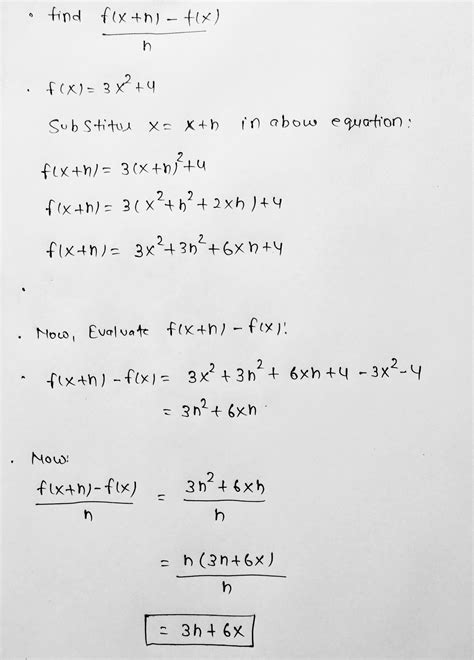 • find f(x+h) - f(x) / h
• f(x) = 3x² + 4
Substitue x = x+h in above equation:
f(x+h) = 3(x+h)² + 4
f(x+h) = 3(x² + h² + 2xh) + 4
f(x+h) = 3x² + 3h² + 6xh + 4
• Now, Evaluate f(x+h) - f(x):
• f(x+h) - f(x) = 3x² + 3h² + 6xh + 4 - 3x² - 4
= 3h² + 6xh
• Now:
f(x+h) - f(x) / h = 3h² + 6xh / h
= h(3h + 6x) / h
= 3h + 6x